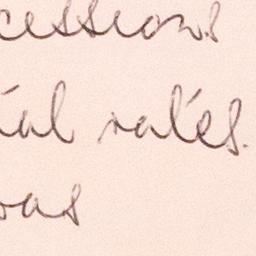 cessions
ial rates.
was